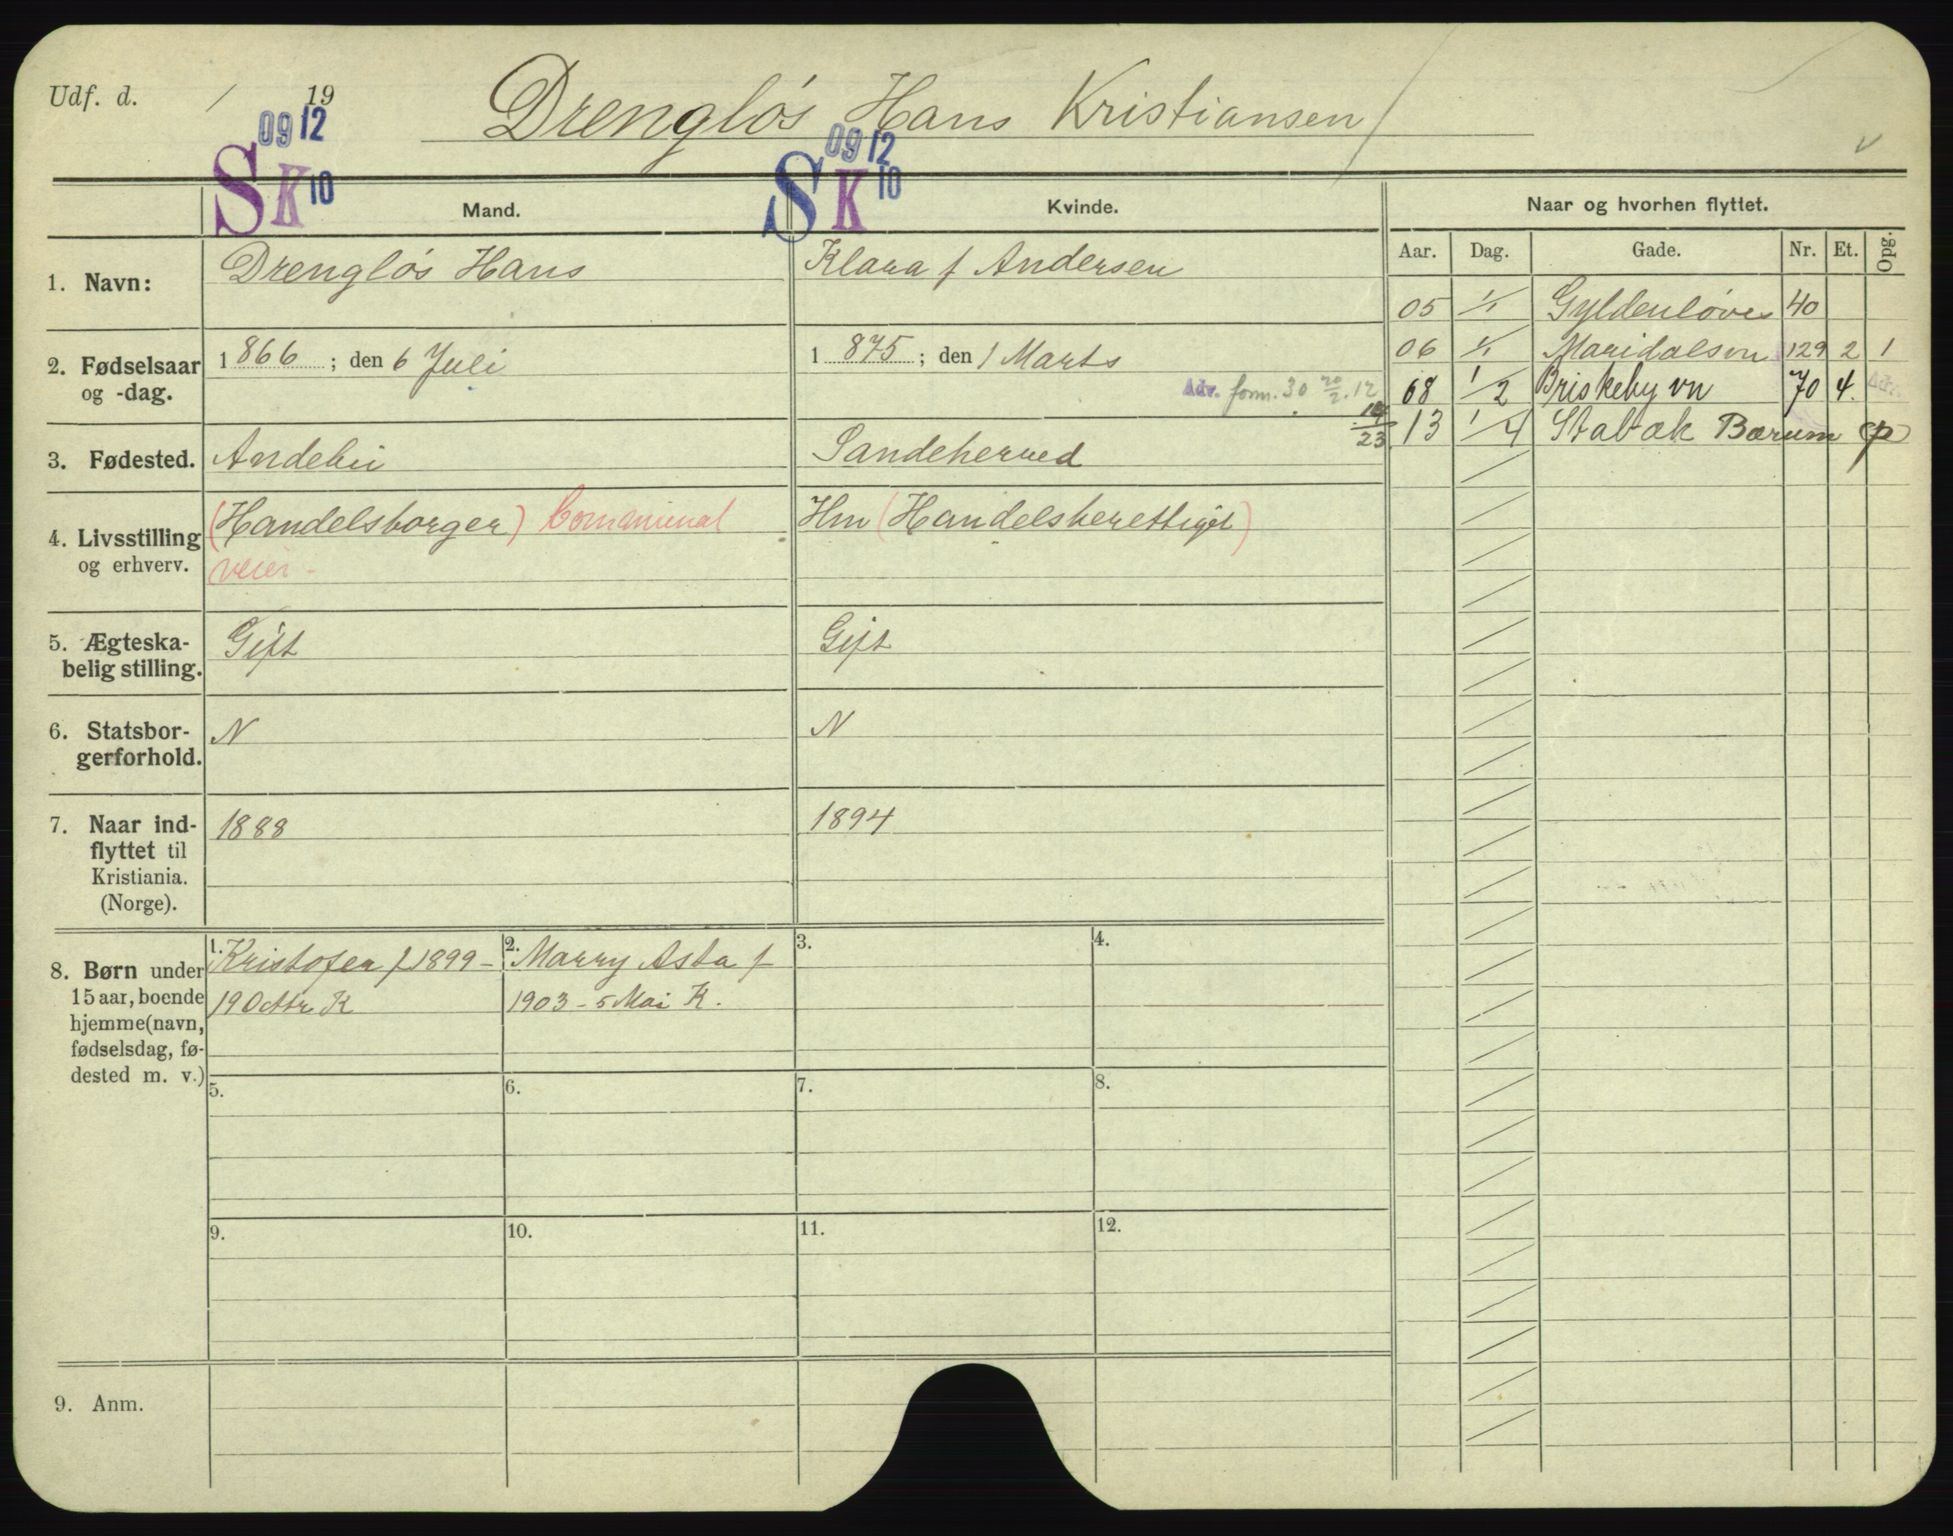 Udf. d. / 19
Drengløs Hans Kristiansen /
09 12
S K 10
09 12
S K 10
Mand.
Kvinde.
Naar og hvorhen flyttet.
Aar. Dag. Gade. Nr. Et. Opg.
1. Navn:
Drengløs Hans
Klara f Andersen
05 1/1 Gyldenløves 40
06 1/1 Maridalsvn 129 2 1
08 1/2 Briskeby vn 70 4. Adr.
13 1/4 Stabæk Bærum
2. Fødselsaar og -dag.
1 866 ; den 6 Juli
1 875 ; den 1 Marts
Adr. form. 30 20/2. 12
23
3. Fødested.
Andebu
Sandeherred
4. Livsstilling og erhverv.
(Handelsborger) Communal
veier -
Hm (Handelsberettiget)
5. Ægteska-
belig stilling.
Gift
Gift
6. Statsbor-
gerforhold.
N
N
7. Naar ind-
flyttet til
Kristiania.
(Norge).
1888
1894
8. Børn under
15 aar, boende
hjemme (navn,
fødselsdag, fø-
dested m. v.)
1. Kristofer f 1899 -
19 Octbr K
2. Marry Asta f
1903 - 5 Mai K.
3.
4.
5.
6.
7.
8.
9.
10.
11.
12.
9. Anm.